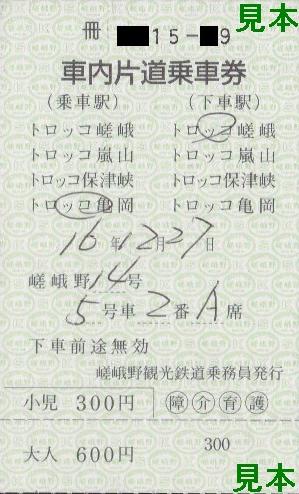 見本
冊 15-9
車内片道乗車券
(乗車駅) (下車駅)
トロッコ嵯峨 トロッコ嵯峨
トロッコ嵐山 トロッコ嵐山
トロッコ保津峡 トロッコ保津峡
トロッコ亀岡 トロッコ亀岡
16年12月27日
嵯峨野14号
5号車2番A席
下車前途無効
嵯峨野観光鉄道乗務員発行
小児 300円 障介育護
大人 600円 300
見本